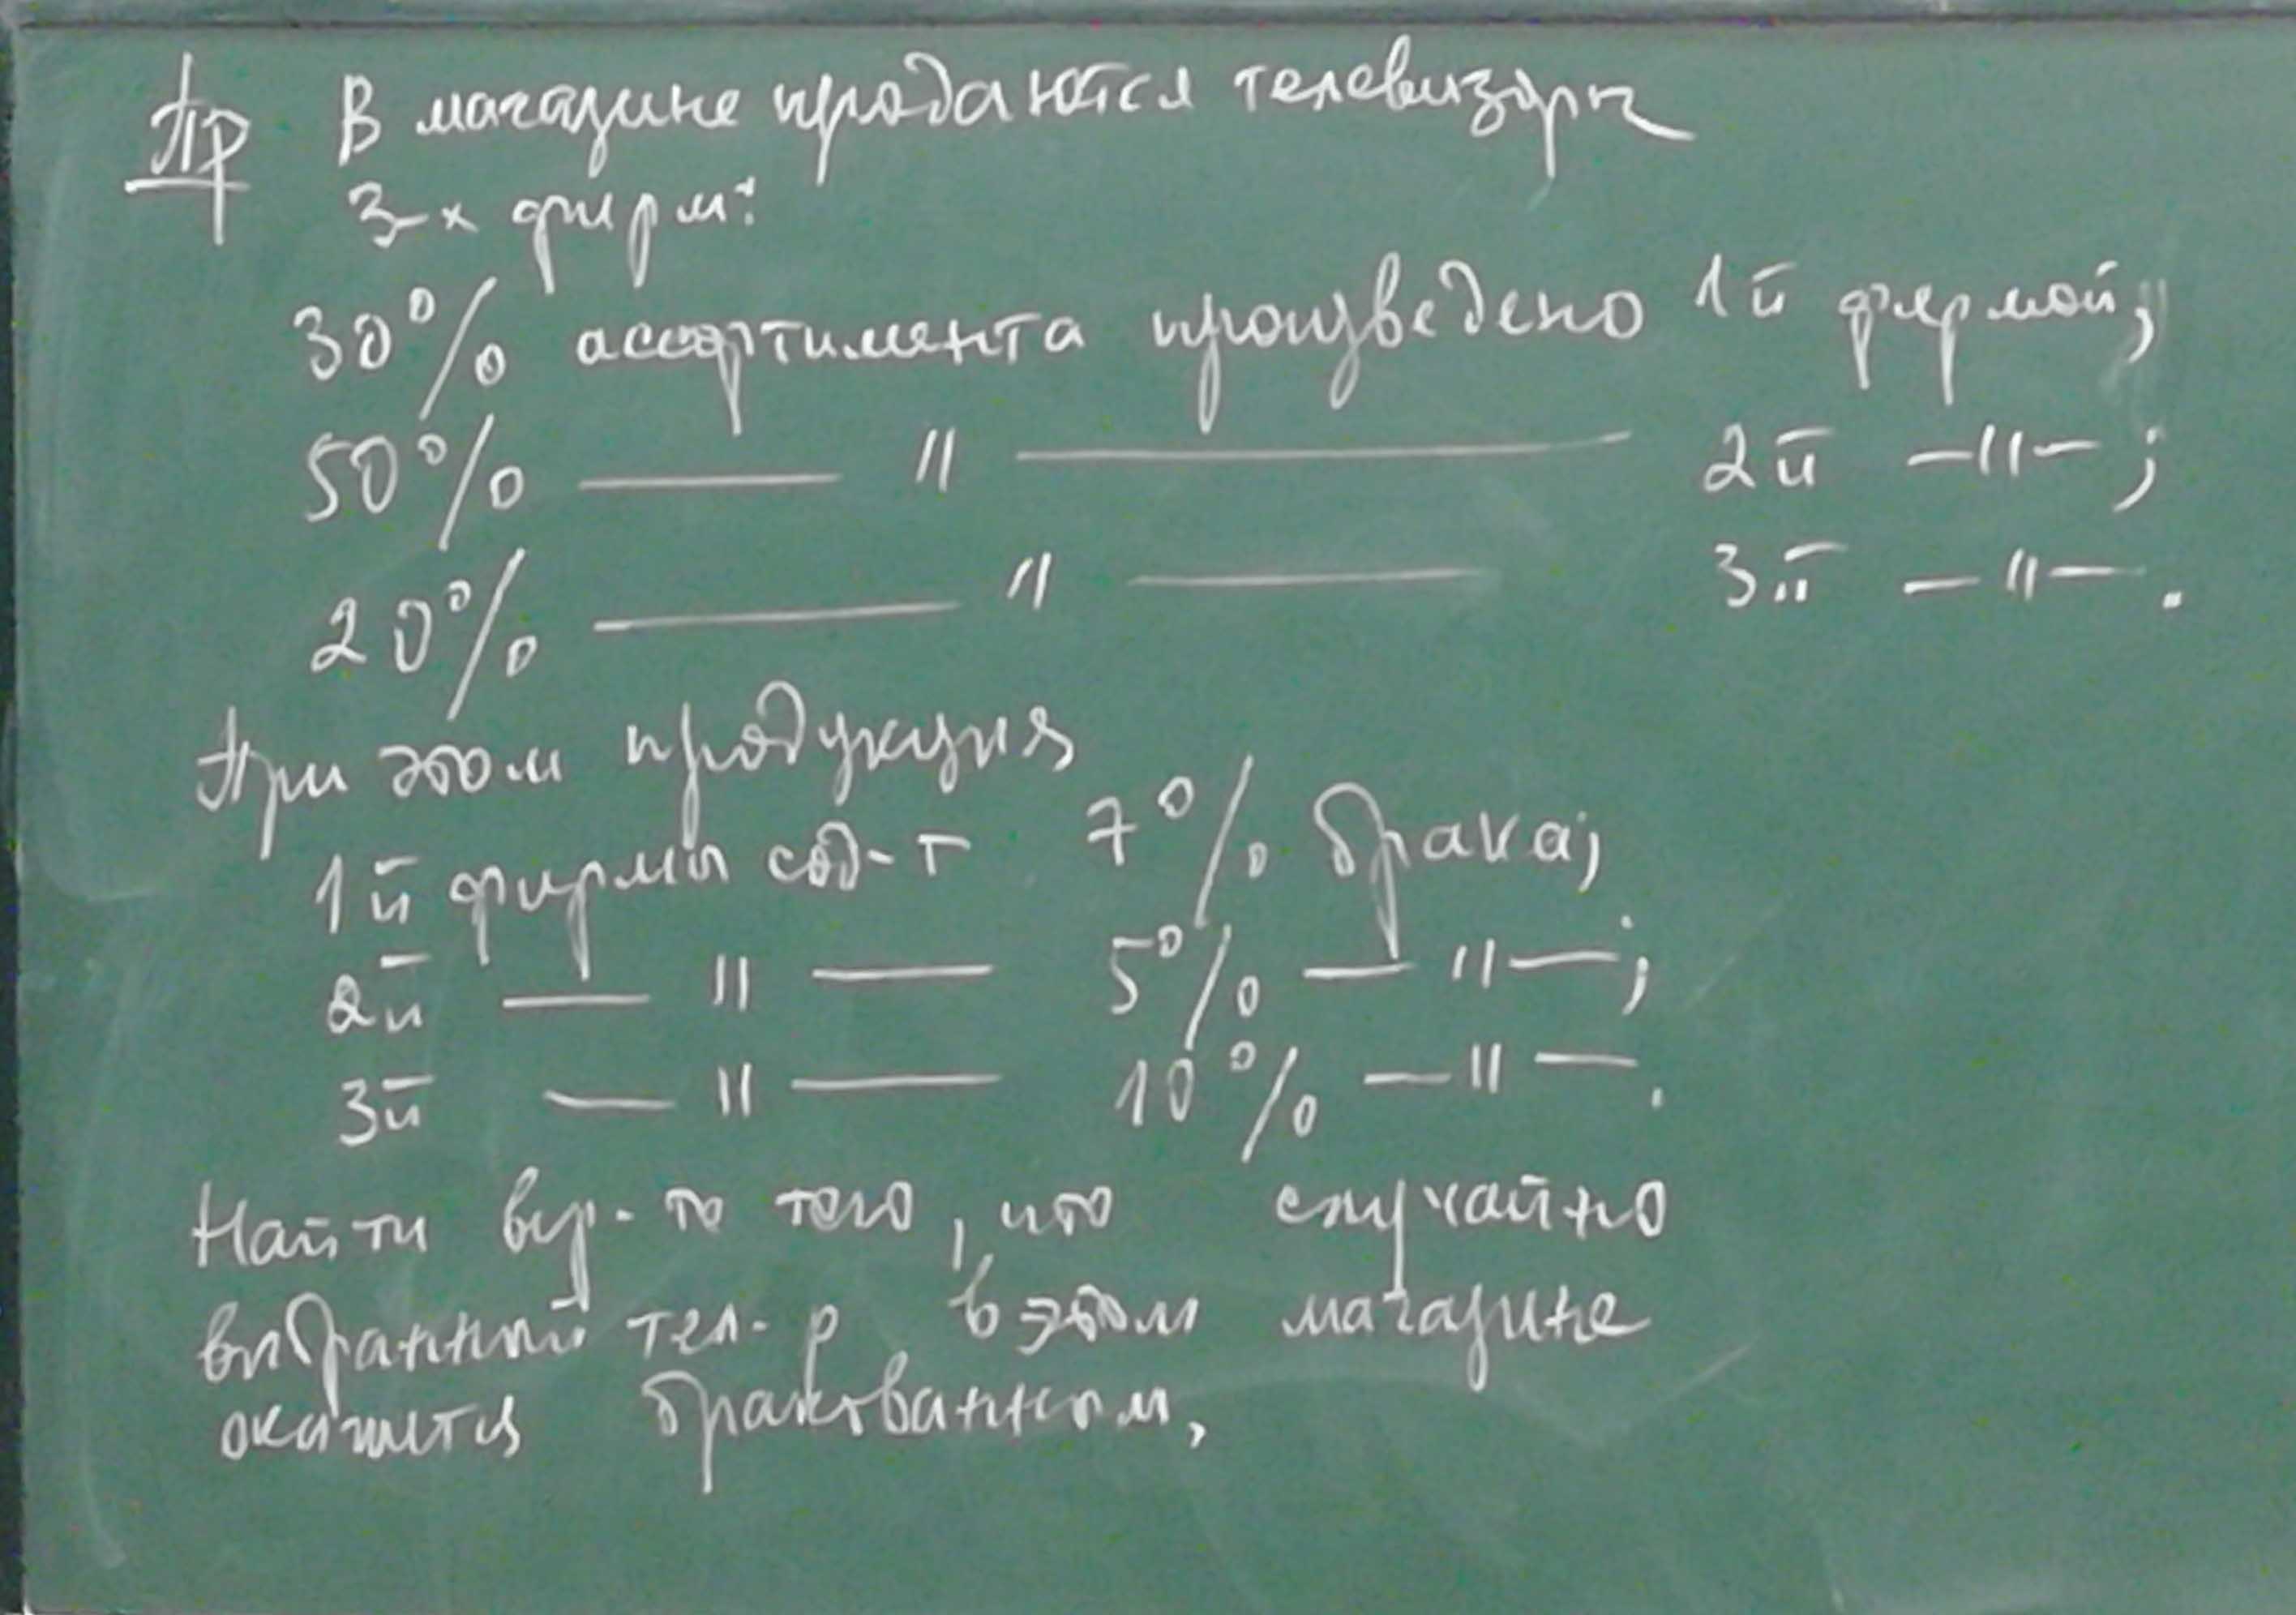 Пр В магазине продаются телевизоры
3-х фирм:
30% ассортимента произведено 1й фирмой;
50% —— " —— 2й —"— ;
20% —— " —— 3й —"— .
При этом продукция
1й фирмы сод-т 7% брака;
2й — " — 5% —"— ;
3й — " — 10% —"— .
Найти вер-ть того, что случайно
выбранный тел-р в этом магазине
окажется бракованным,